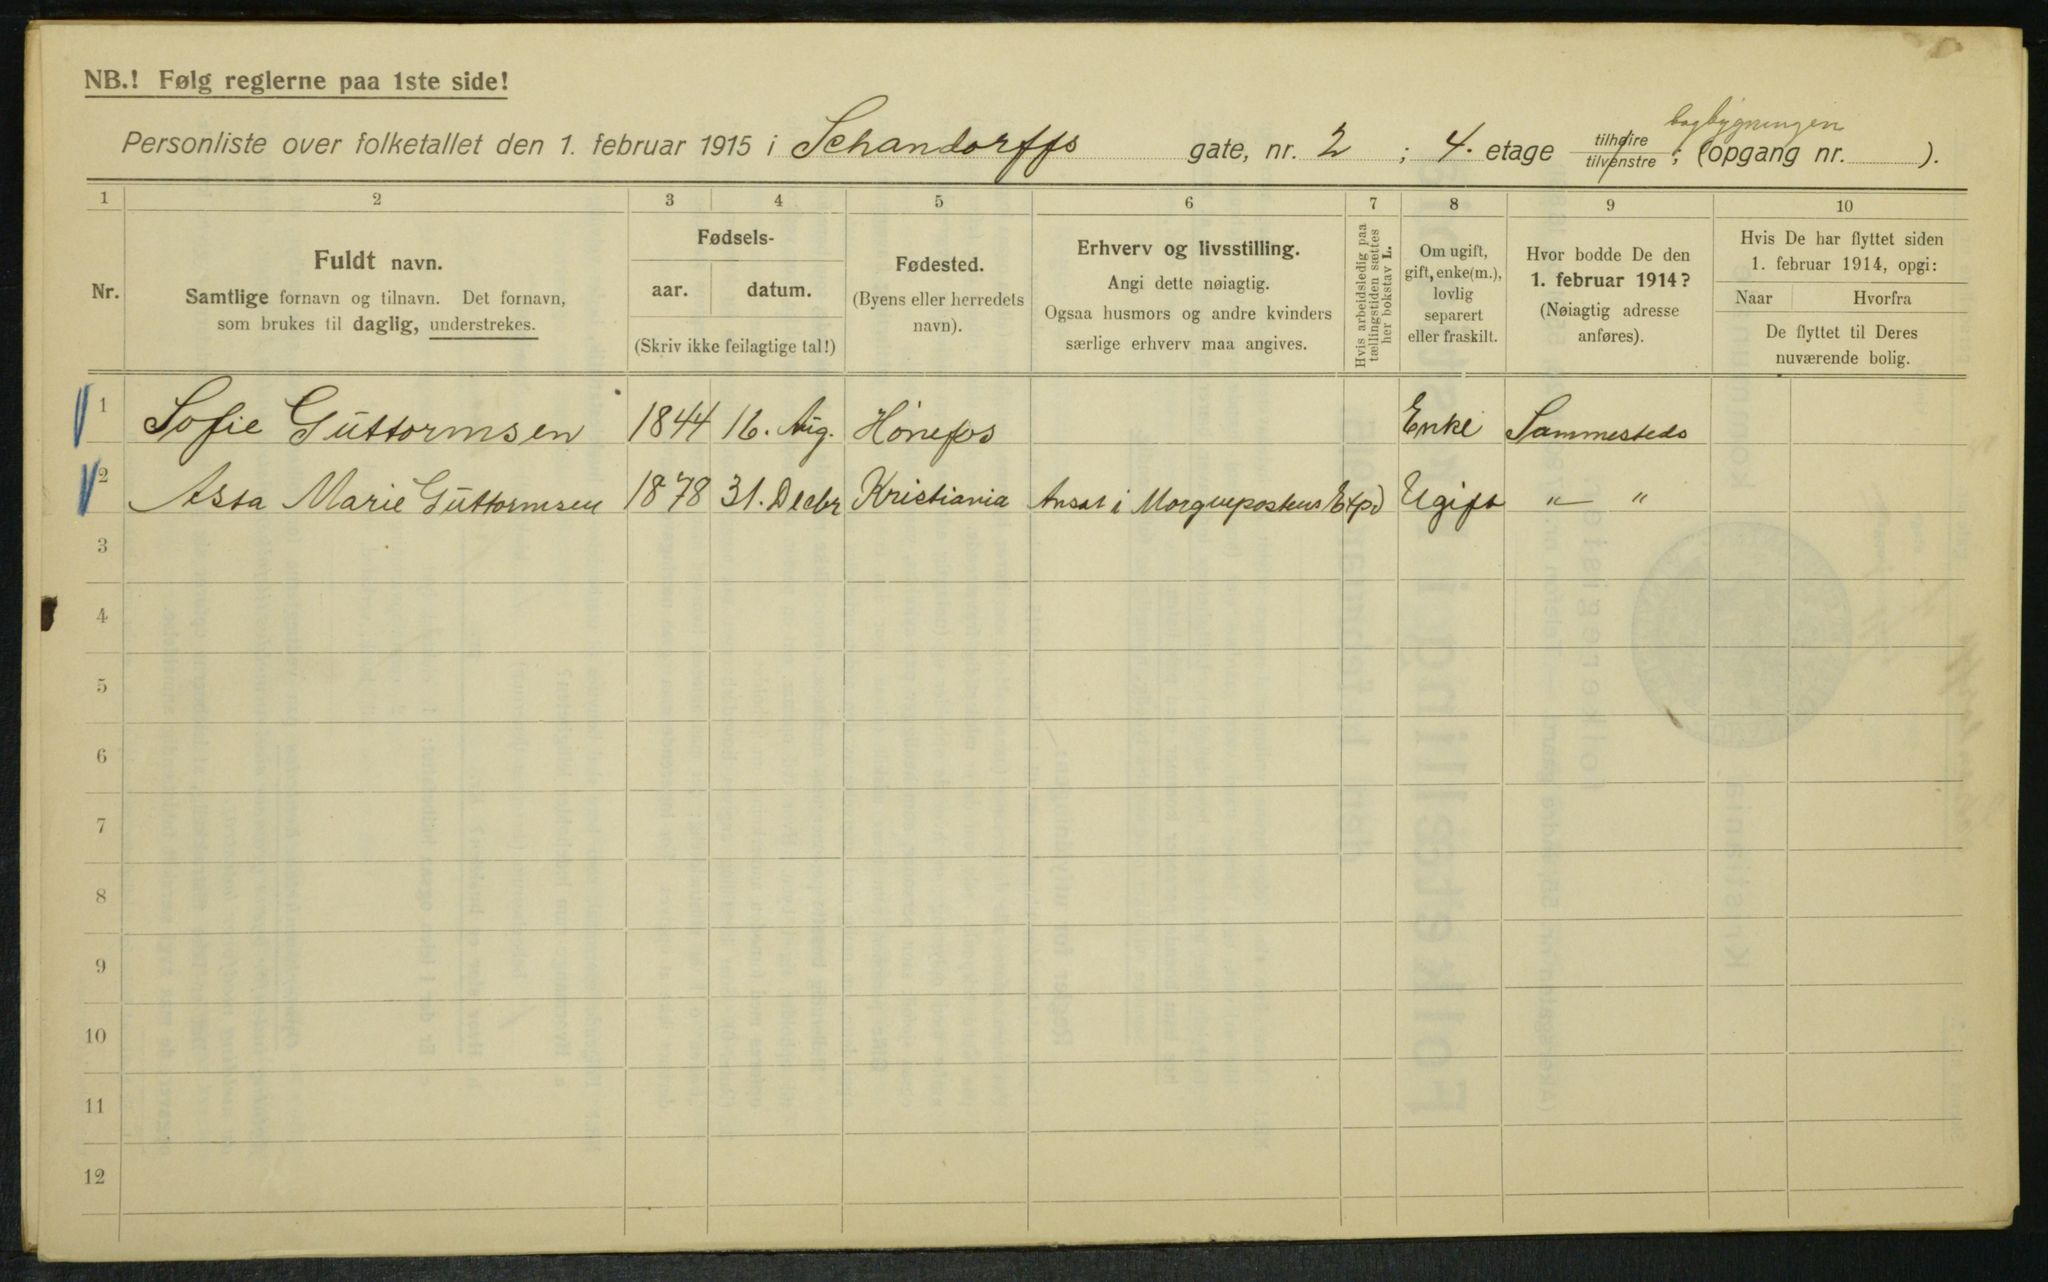 NB.! Følg reglerne paa 1ste side!
bagbygningen
Personliste over folketallet den 1. februar 1915 i Schandorffs gate, nr. 2 ; 4. etage tilhøire tilvenstre ; (opgang nr. ).
1 2 3 4 5 6 7 8 9 10
Nr.
Fuldt navn.
Samtlige fornavn og tilnavn. Det fornavn,
som brukes til daglig, understrekes.
Fødsels-
aar. datum.
(Skriv ikke feilagtige tal!)
Fødested.
(Byens eller herredets
navn).
Erhverv og livsstilling.
Angi dette nøiagtig.
Ogsaa husmors og andre kvinders
særlige erhverv maa angives.
Hvis arbeidsledig paa
tællingstiden sættes
her bokstav L.
Om ugift,
gift, enke(m.),
lovlig
separert
eller fraskilt.
Hvor bodde De den
1. februar 1914?
(Nøiagtig adresse
anføres).
Hvis De har flyttet siden
1. februar 1914, opgi:
Naar Hvorfra
De flyttet til Deres
nuværende bolig.
1 Sofie Guttormsen 1844 16. Aug. Hønefos Enke Sammesteds
2 Asta Marie Guttormsen 1878 31. Decbr Kristiania Ansat i Morgenpostens Exp) Ugift " — "
3
4
5
6
7
8
9
10
11
12